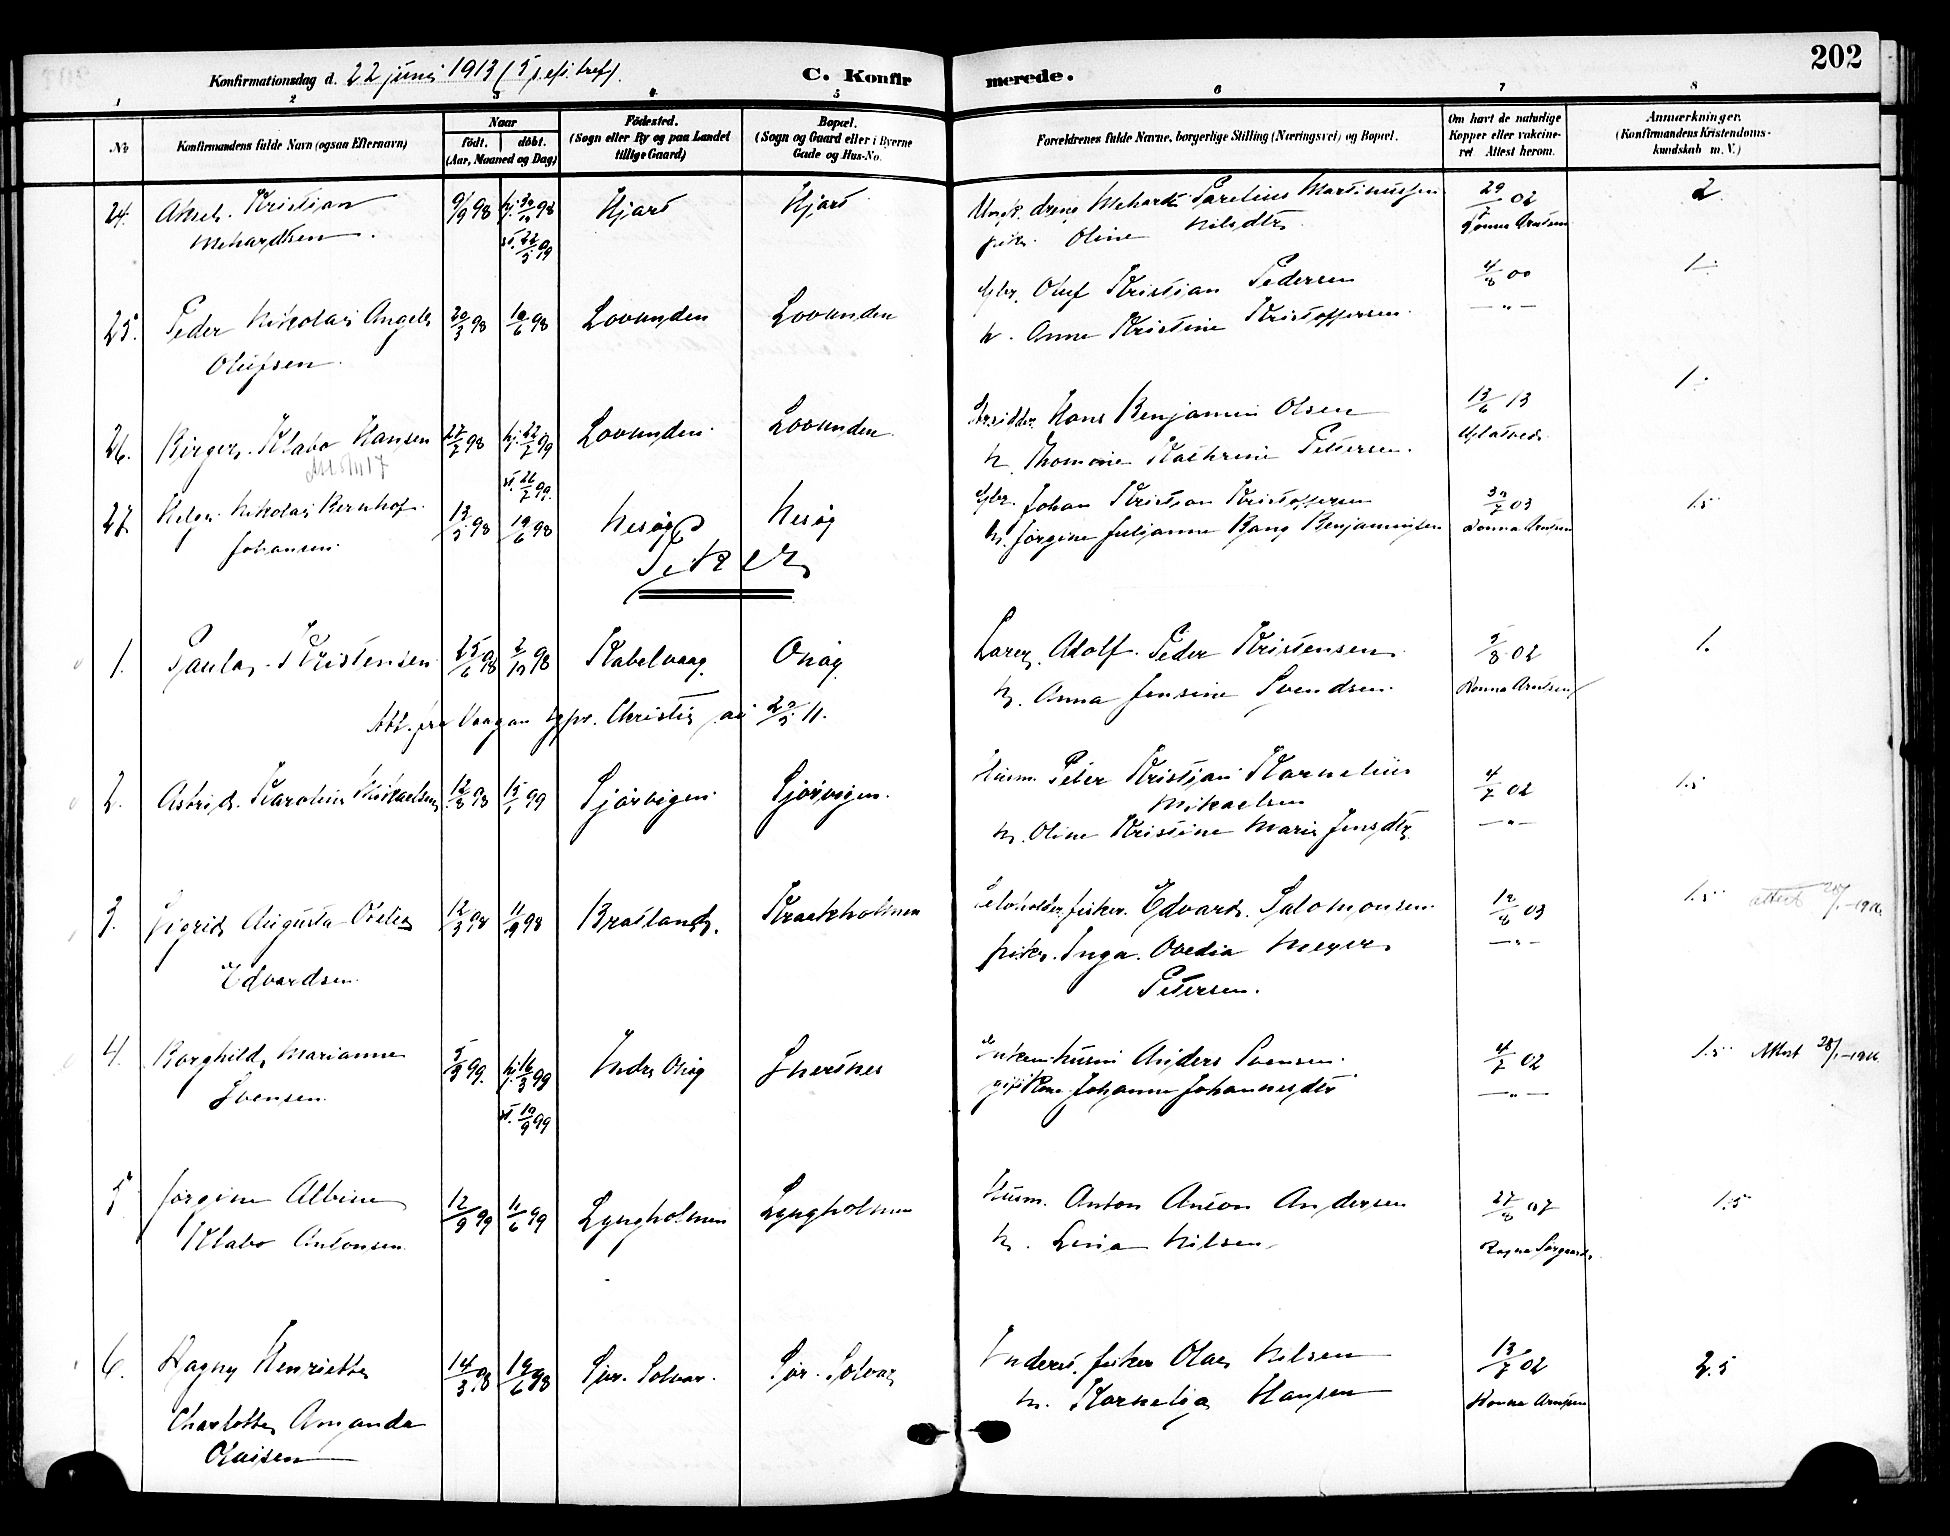 202
Konfirmationsdag d. 22 juni 1913 (5 p. ef. tref).
C. Konfirmerede.
1 2 3 4 5 6 7 8
No
Konfirmandens fulde Navn (ogsaa Efternavn)
Naar
födt. döbt.
(Aar, Maaned og Dag)
Födested.
(Sogn eller By og paa Landet
tillige Gaard)
Bopæl.
(Sogn og Gaard eller i Byerne
Gade og Hus-No.
Forældrenes fulde Navne, borgerlige Stilling (Næringsvei) og Bopæl.
Om havt de naturlige
Kopper eller vakcine-
ret Attest herom.
Anmærkninger.
(Konfirmandens Kristendoms-
kundskab m. V.)
24. Aksel Kristian 9/9 98 hj. 30/10 98 Hjart Hjart Ungk. dreng Mehardt Parelius Martinussen 29/7 02 2
Mehardsen. st. 22/5 99 pike. Oline Nilsdtr
25. Peder Nikolai Angell 20/3 98 19/6 98 Lovunden Lovunden Gbr. Oluf Kristian Pedersen 4/8 00 1.
Olufsen. h. Anna Kristine Kristoffersen. — " —
26. Birger Klabo Hansen 27/7 98 hj. 22/2 99 Lovunden Lovunden Hans Benjamin Olsen 13/6 13 1.
st. 26/2 99. h. Thomine Kathrine Petersen.
27. Helge Nikolai Bernhof 13/3 98 19/6 98 Nesøy Nesøy Gbr. Johan Kristian Kristoffersen 30/7 03 1.5
Johansen. h. Jørgine Julianne Bang Benjaminsen Ronna Arntsen
Piker
1. Paula Kristensen 25/6 98 2/10 98 Kabelvaag Onøy Lærer Adolf Peder Kristensen 5/8 02 1.
h. Anna Jensine Svendsen. Ronna Arntsen
Att. fra Vaagan sgpr. Christie av 20/5 11.
2. Astrid Karoline Mikaelsen 12/8 98 15/1 99 Sjørvigen Sjørvigen. Husm. Peter Kristian Kornelius 4/7 02 1.5
Mikaelsen — " —
h. Oline Kristine Marie Jensdtr.
3. Sigrid Augusta Ovedia 12/3 98 11/9 98 Bratland. Kraakholmen Selvholder, fisker. Edvard Salomonsen 12/8 03 1.5 attest 28/1-1916.
Edvardsen pike. Inga Ovedia Meyer — " —
Petersen.
4. Borghild Marianne 5/3 99. hj. 16/3 99 Indre Onøy Enkem. husm Anders Svensen. 4/7 02 1.5 Attest 28/1-1916
Svensen st. 10/9 99 Johanna Johannesdtr — " —
5 Jørgine Albine 12/9 99 11/6 99 Lyngholmen Lyngholmen Husm. Anton Anton Andersen 27/8 07 1.5
Klabo Antonsen h. Lena Nilsen Ragna Sørgaard
6. Hagny Henriette 14/3 98 19/6 98 Sør-Solvær. Sør-Solvær Inderst, fisker Olai Nilsen 13/7 02 2.5
Charlotte Amanda h. Kornelia Hansen Ronna Arntsen
Olaisen